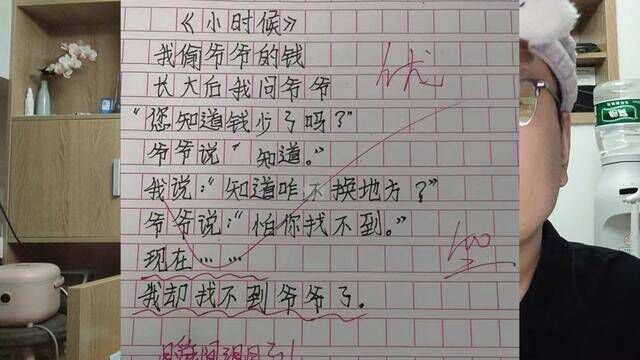 《小时候》
我偷爷爷的钱
长大后我问爷爷
“您知道钱少了吗？”
爷爷说“知道。”
我说：“知道咋不换地方？”
爷爷说：“怕你找不到。”
现在……
我却找不到爷爷了。
优
100